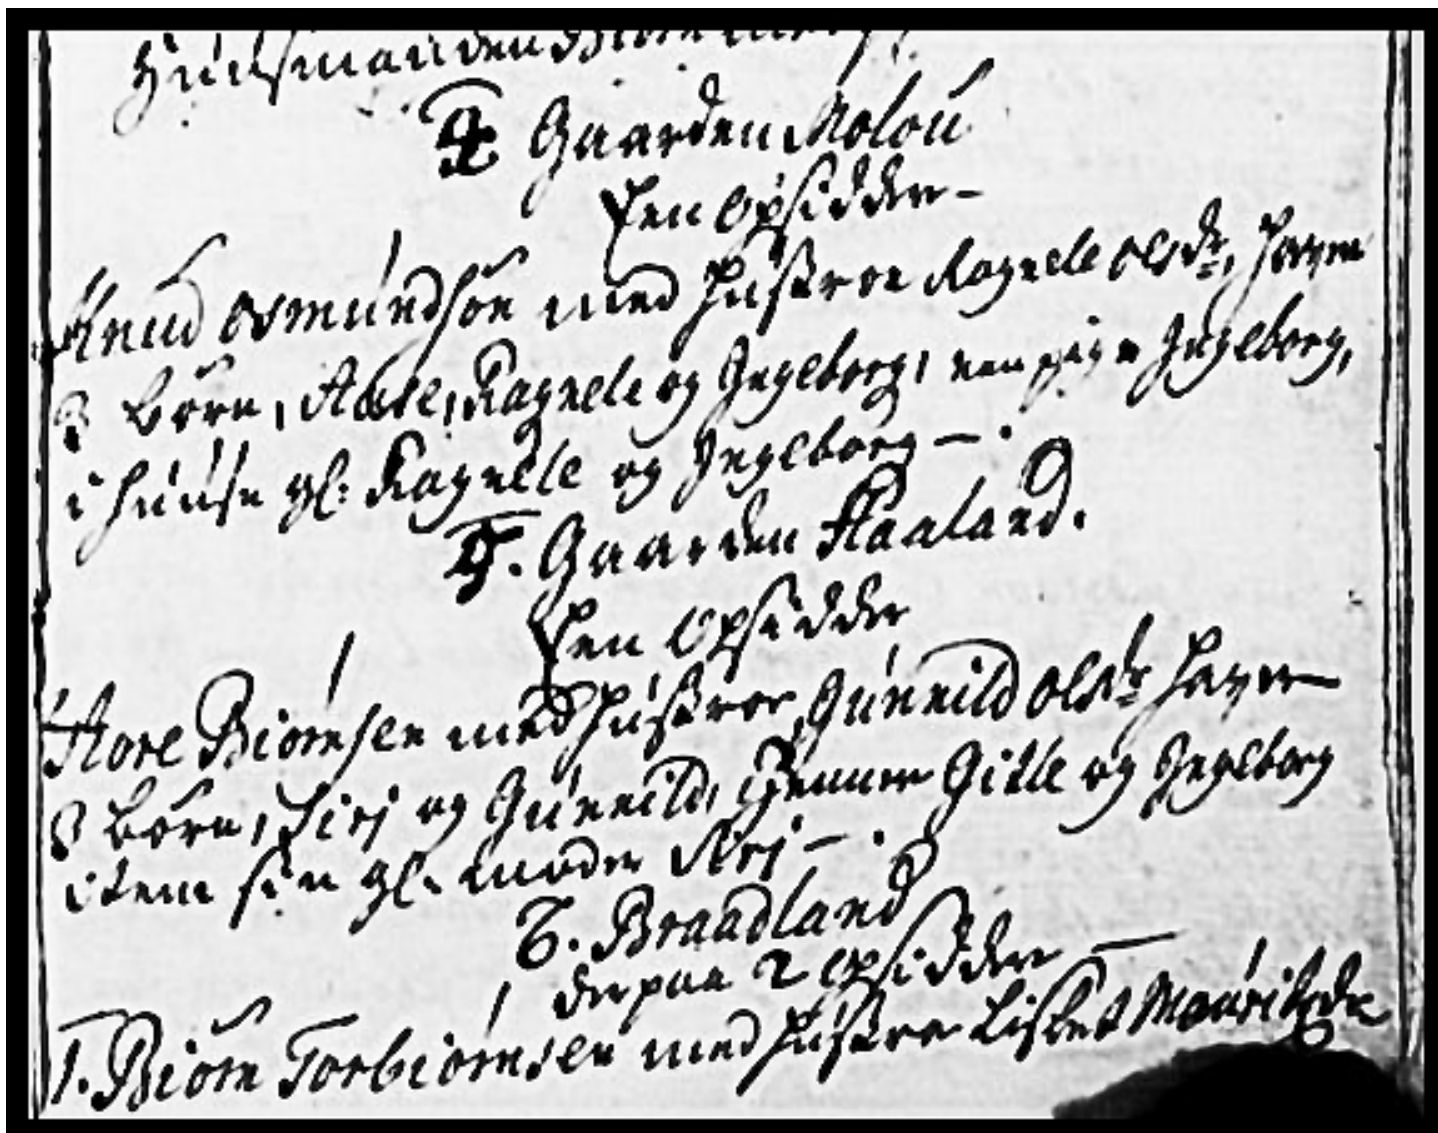 Huusmanden Biørn
4 Gaarden Molou
Een Opsidder –
Knud Osmundson med Hustroe Ragnele Olsdr, hafver
3 børn, Aase, Ragnele og Ingeborg, een pige Ingeborg,
i huuse gl: Ragnele og Ingeborg – .
5. Gaarden Haaland.
Een Opsidder
Aore Biørnsen med Hustroe, Gunnild Olsdr hafver
3 børn, Siri og Gunnild, Tienner Gitle og Ingeborg
item sin gl. moder Siri – .
6. Braadland
derpaa 2 opsidder –
1. Biørn Torbiørnsen med Hustroe Lisbet Mouritsdr